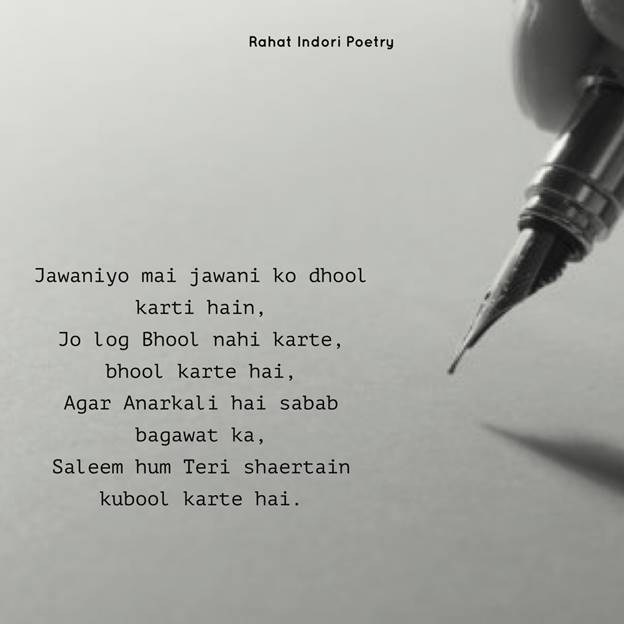 Rahat Indori Poetry
Jawaniyo mai jawani ko dhool
karti hain,
Jo log Bhool nahi karte,
bhool karte hai,
Agar Anarkali hai sabab
bagawat ka,
Saleem hum Teri shaertain
kubool karte hai.